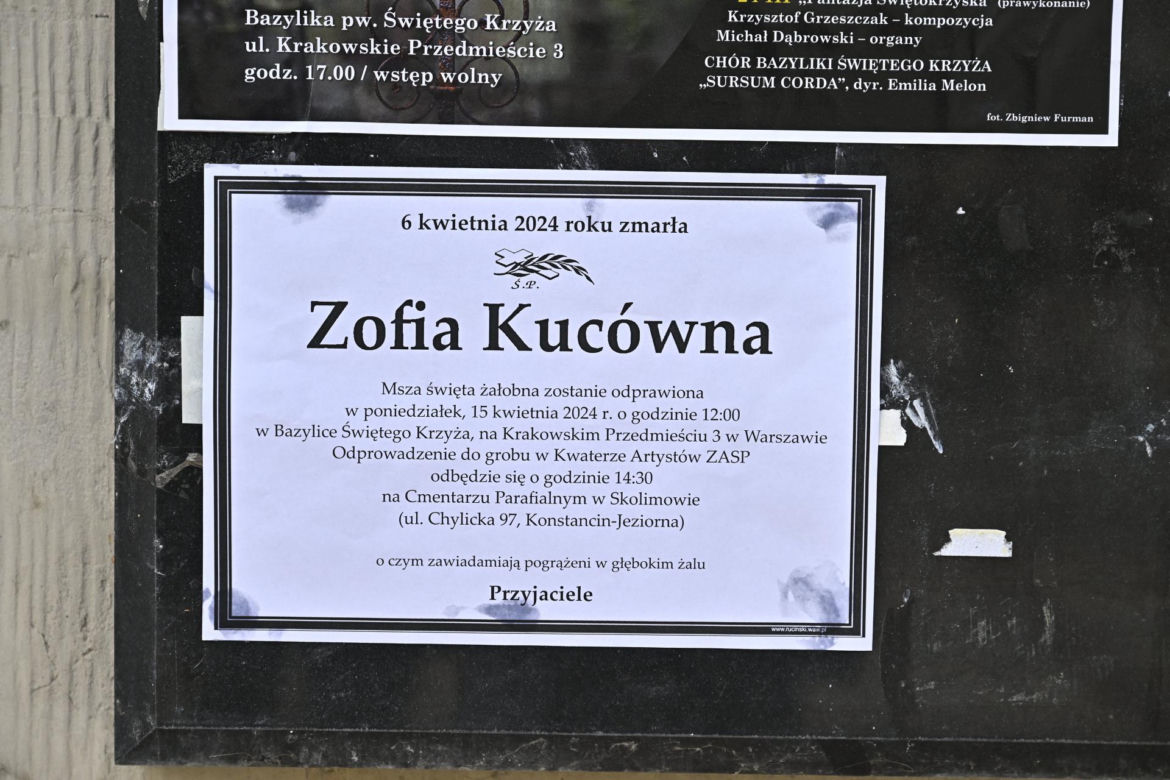 Bazylika pw. Świętego Krzyża
ul. Krakowskie Przedmieście 3
godz. 17.00 / wstęp wolny
„Fantazja Świętokrzyska” (prawykonanie)
Krzysztof Grzeszczak – kompozycja
Michał Dąbrowski – organy
CHÓR BAZYLIKI ŚWIĘTEGO KRZYŻA
„SURSUM CORDA”, dyr. Emilia Melon
fot. Zbigniew Furman
6 kwietnia 2024 roku zmarła
Ś.P.
Zofia Kucówna
Msza święta żałobna zostanie odprawiona
w poniedziałek, 15 kwietnia 2024 r. o godzinie 12:00
w Bazylice Świętego Krzyża, na Krakowskim Przedmieściu 3 w Warszawie
Odprowadzenie do grobu w Kwaterze Artystów ZASP
odbędzie się o godzinie 14:30
na Cmentarzu Parafialnym w Skolimowie
(ul. Chylicka 97, Konstancin-Jeziorna)
o czym zawiadamiają pogrążeni w głębokim żalu
Przyjaciele
www.rucinski.waw.pl